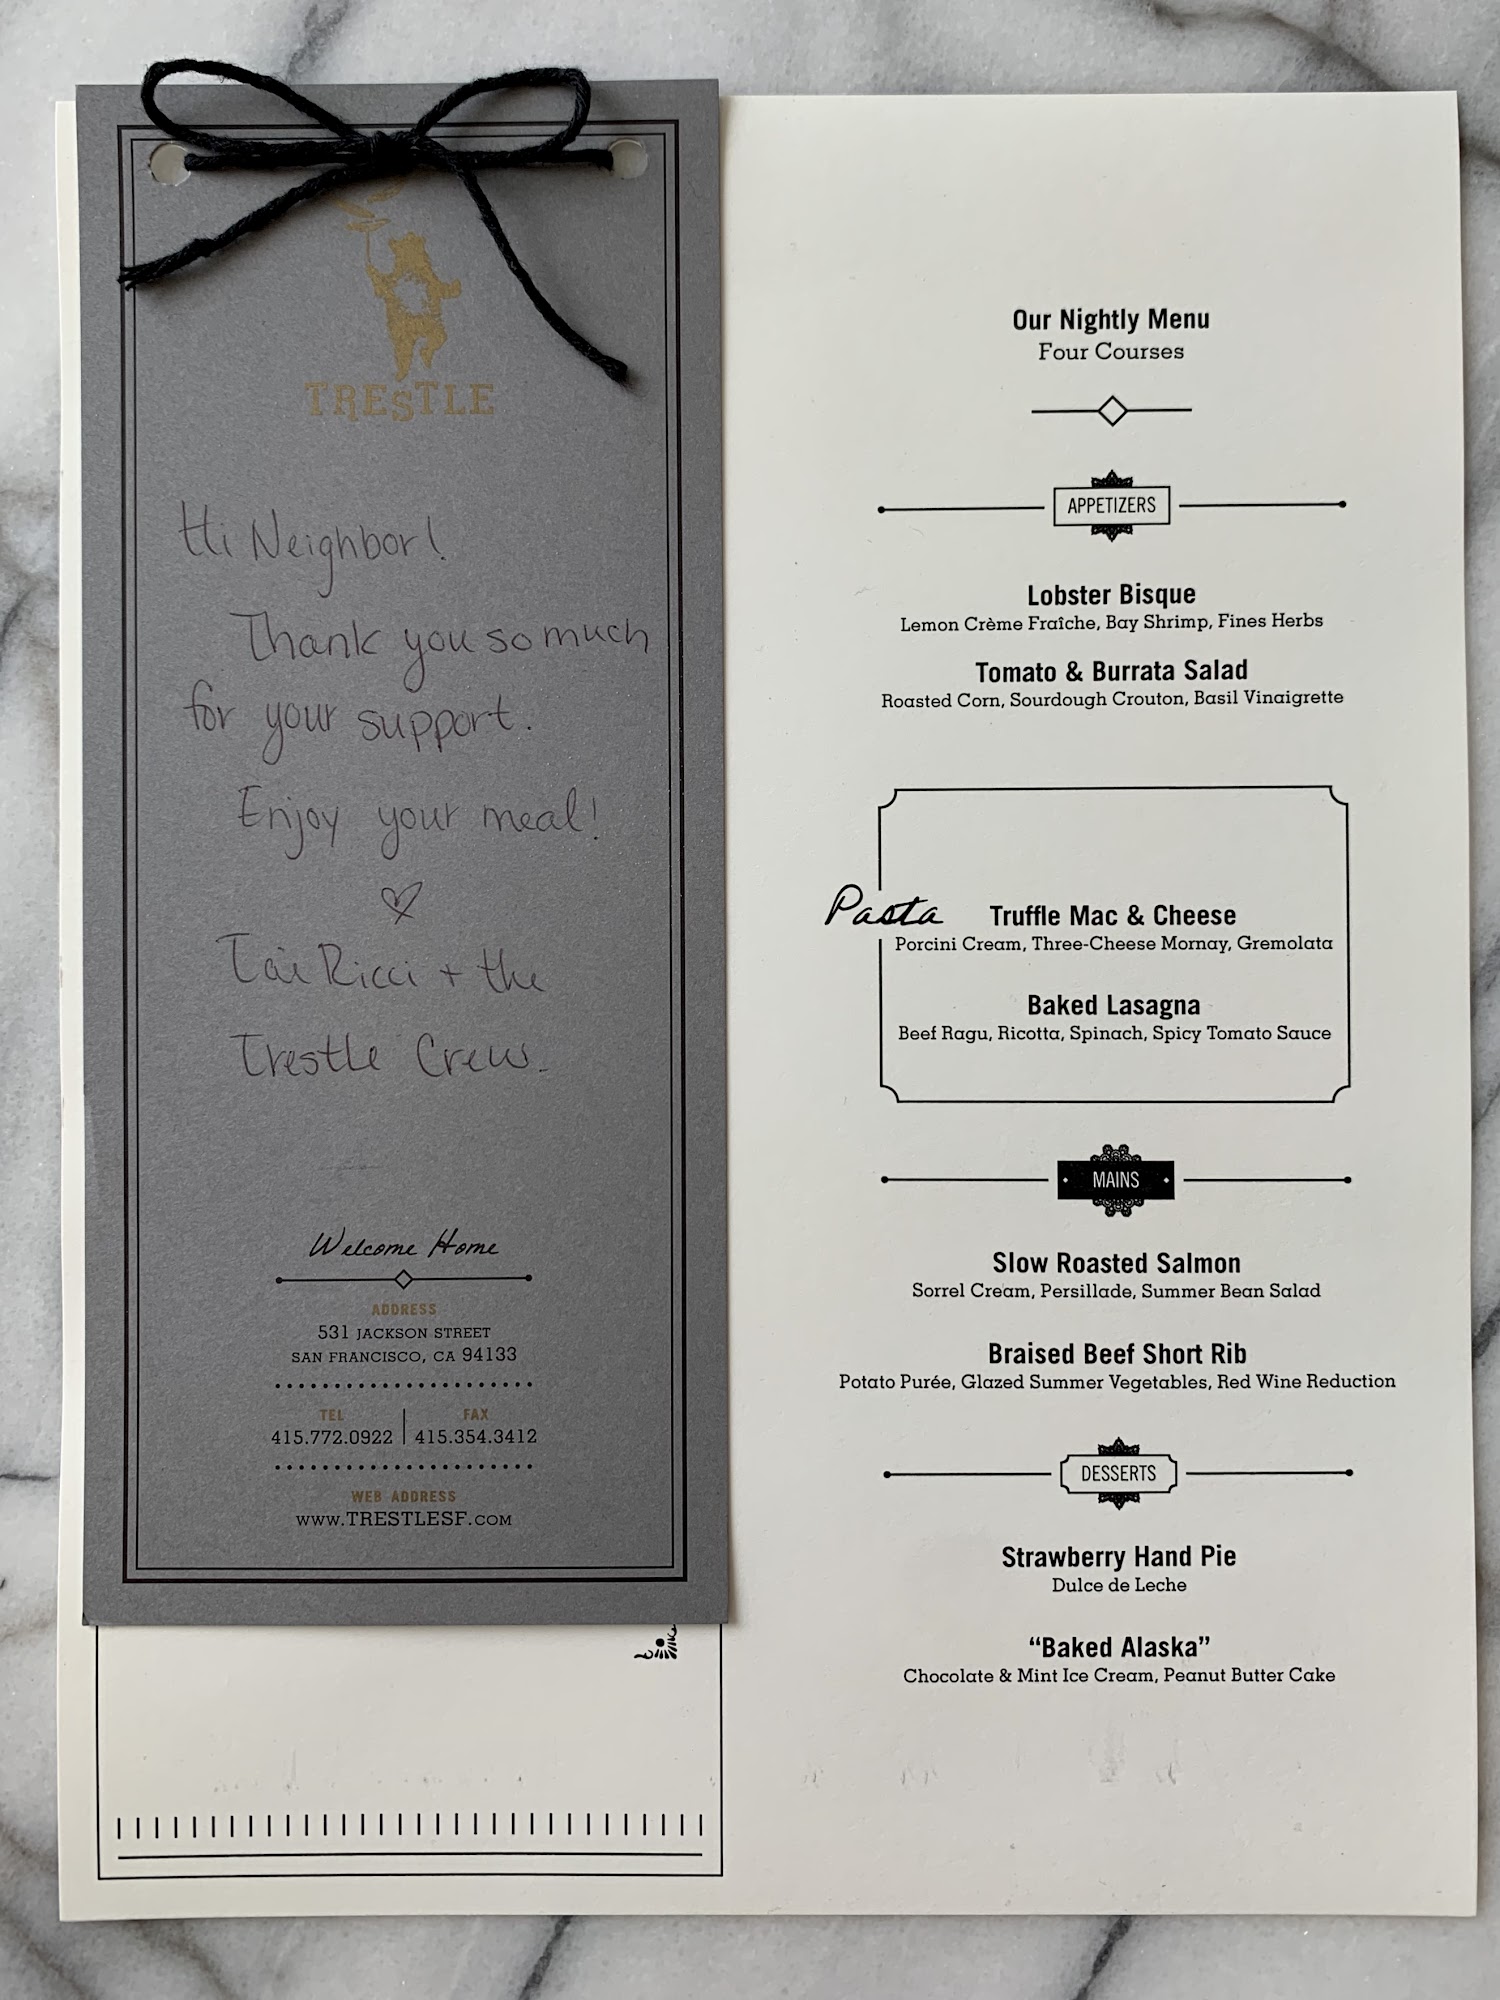 TRESTLE
Hi Neighbor!
Thank you so much
for your support.
Enjoy your meal!
Ricci + the
Trestle Crew.
Welcome Home
ADDRESS
531 JACKSON STREET
SAN FRANCISCO, CA 94133
TEL
415.772.0922
FAX
415.354.3412
WEB ADDRESS
WWW.TRESTLESF.COM
Our Nightly Menu
Four Courses
APPETIZERS
Lobster Bisque
Lemon Crème Fraîche, Bay Shrimp, Fines Herbs
Tomato & Burrata Salad
Roasted Corn, Sourdough Crouton, Basil Vinaigrette
Pasta
Truffle Mac & Cheese
Porcini Cream, Three-Cheese Mornay, Gremolata
Baked Lasagna
Beef Ragu, Ricotta, Spinach, Spicy Tomato Sauce
MAINS
Slow Roasted Salmon
Sorrel Cream, Persillade, Summer Bean Salad
Braised Beef Short Rib
Potato Purée, Glazed Summer Vegetables, Red Wine Reduction
DESSERTS
Strawberry Hand Pie
Dulce de Leche
“Baked Alaska”
Chocolate & Mint Ice Cream, Peanut Butter Cake